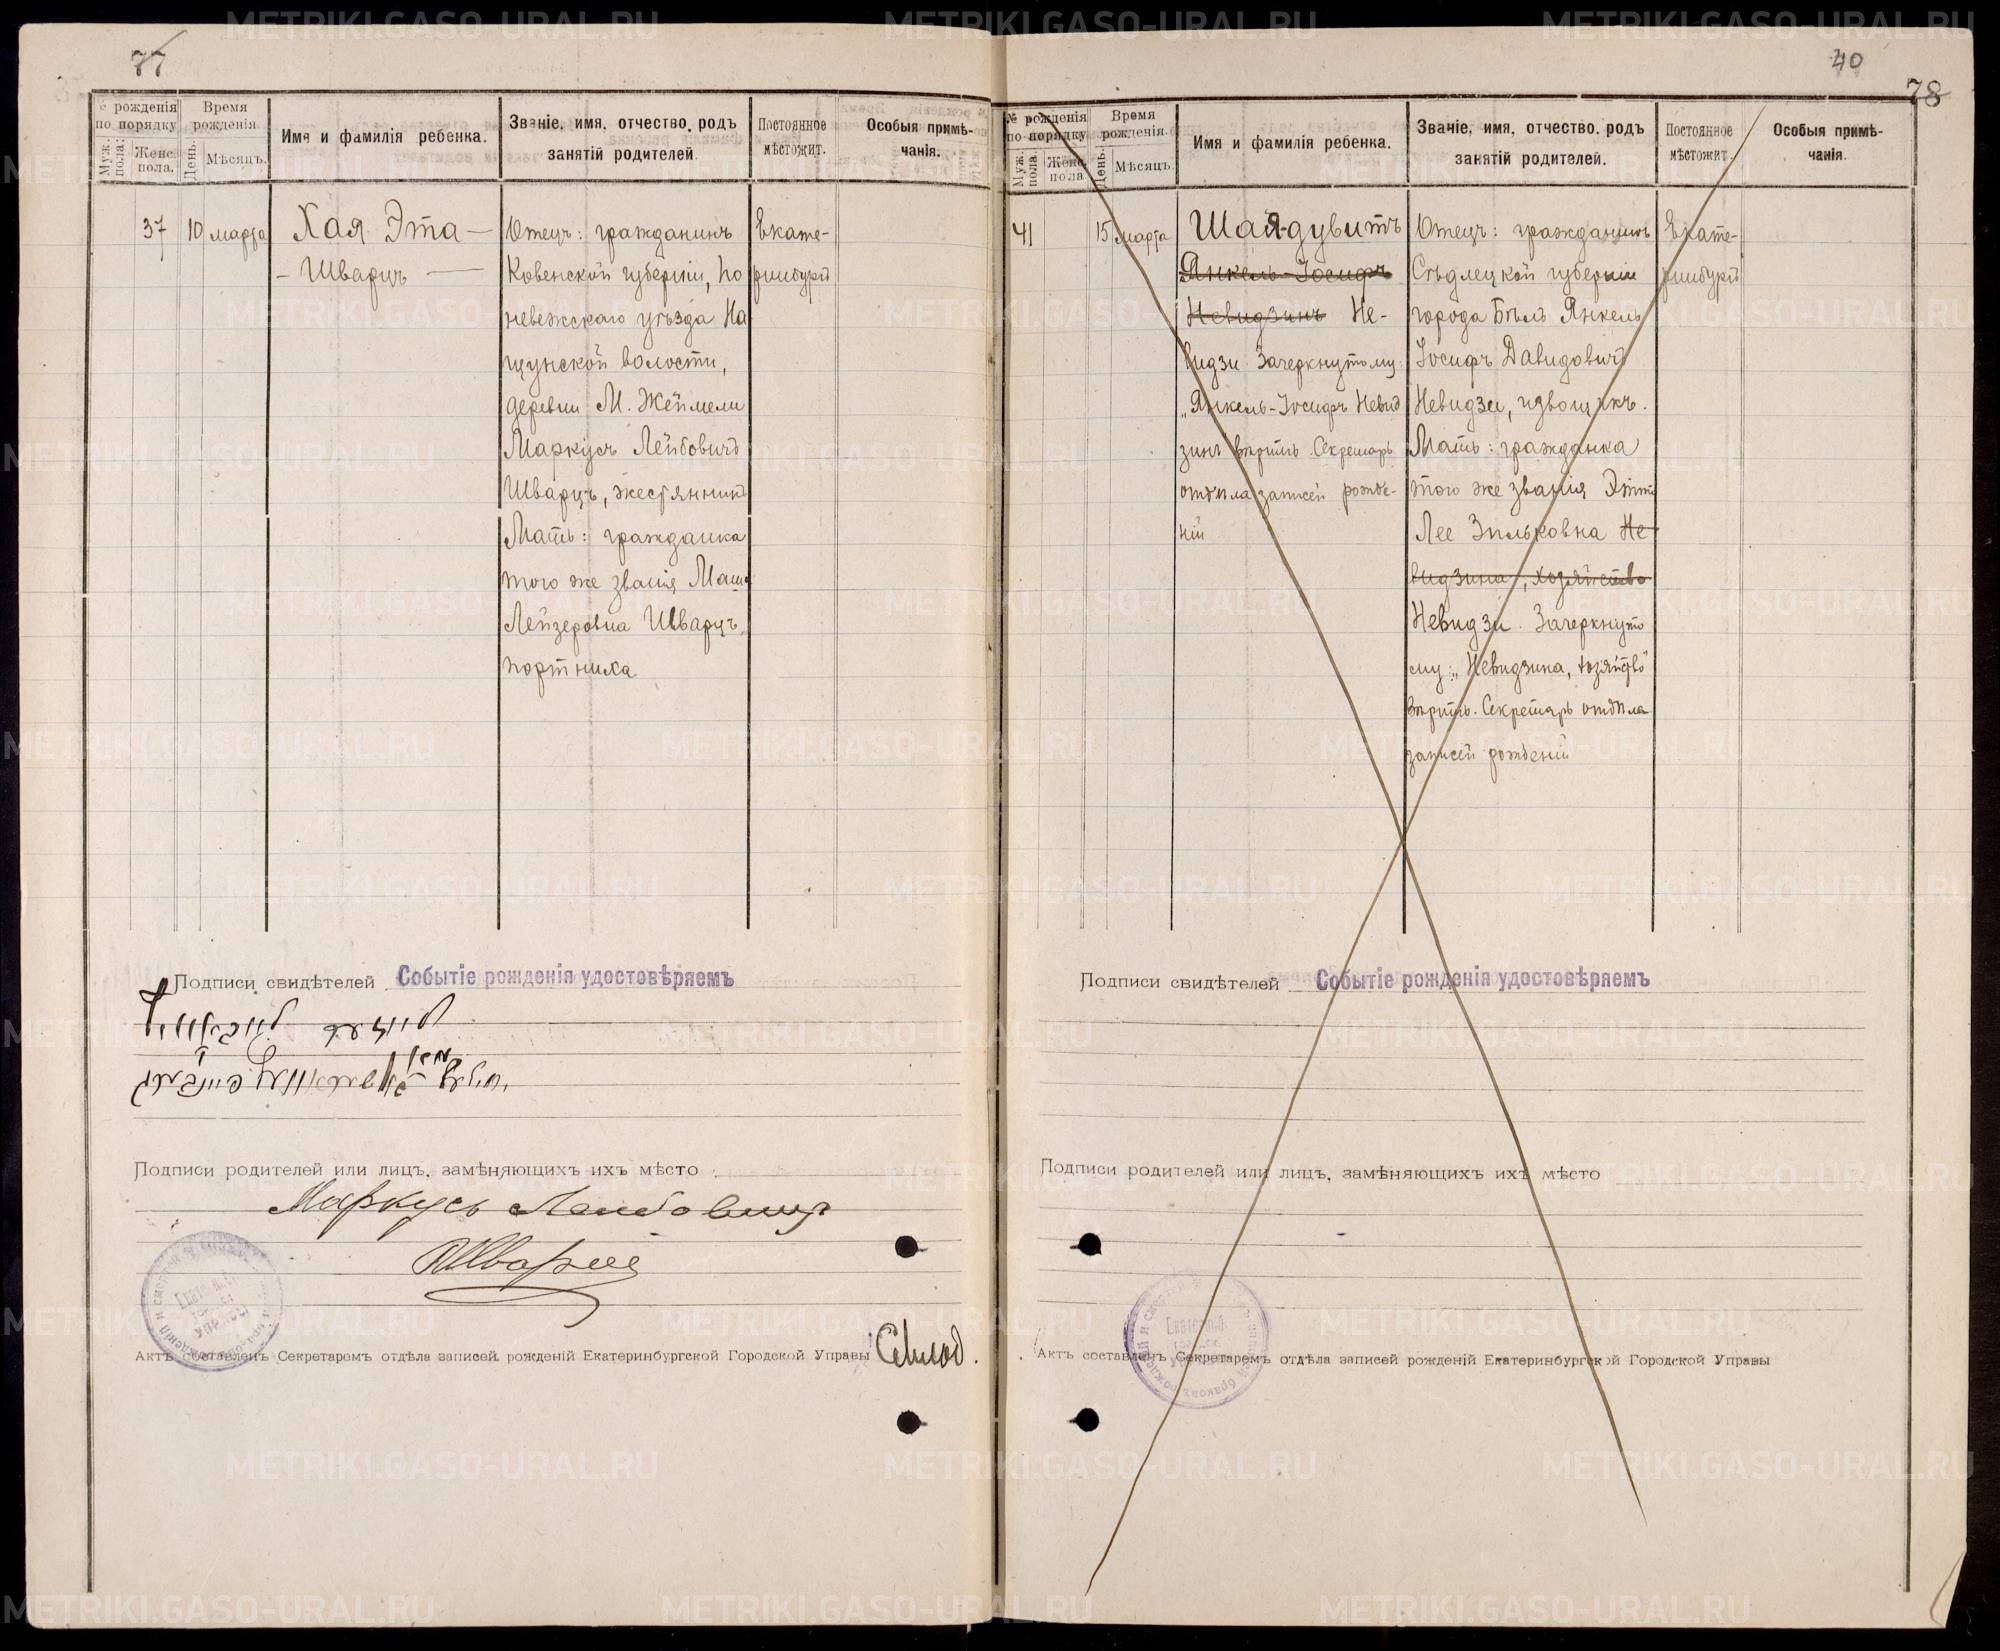 77
№ рожденія по порядку
Муж. пола.
Женс. пола.
Время рожденія.
День.
Мѣсяцъ.
Имя и фамилія ребенка.
Званіе, имя, отчество, родъ занятій родителей.
Постоянное мѣстожит.
Особыя примѣчанія.
37 10 марта
Хая Эта —
— Шварцъ —
Отецъ: гражданинъ
Ковенской губерніи, По
невежскаго уѣзда
волости,
деревни М. Жеймели
Маркусъ Лейбовичъ
Шварцъ, жестянникъ
Мать: гражданка
того же званія Маша
Лейзеровна Шварцъ
портниха
Екате-
ринбургъ
Подписи свидѣтелей
Событіе рожденія удостовѣряемъ
Подписи родителей или лицъ, замѣняющихъ ихъ мѣсто
Маркусъ Лейбовичъ
Шварцъ
Актъ составленъ Секретаремъ отдѣла записей рожденій Екатеринбургской Городской Управы
40
78
№ рожденія по порядку
Муж. пола.
Женс. пола
Время рожденія.
День.
Мѣсяцъ.
Имя и фамилія ребенка.
Званіе, имя, отчество, родъ занятій родителей.
Постоянное мѣстожит.
Особыя примѣчанія.
41 15 марта
Шая-дувитъ
Янкель-Іосифъ
Невидзинъ Не-
видзи Зачеркнутому:
„Янкель-Іосифъ Невид
зинъ вѣрить. Секретарь
отдѣла записей рожде-
ній
Отецъ: гражданинъ
Сѣдлецкой губерніи
города Бѣлы Янкель
Іосифъ Давидовичъ
Невидзи, извощикъ.
Мать: гражданка
того же званія
Не-
видзина, хозяйство
Невидзи. Зачеркнуто
му: „Невидзина, хозяйство"
вѣрить. Секретарь отдѣла
записей рожденій
Екате-
ринбургъ
Подписи свидѣтелей
Событіе рожденія удостовѣряемъ
Подписи родителей или лицъ, замѣняющихъ ихъ мѣсто
Актъ составленъ Секретаремъ отдѣла записей рожденій Екатеринбургской Городской Управы
METRIKI.GASO-URAL.RU